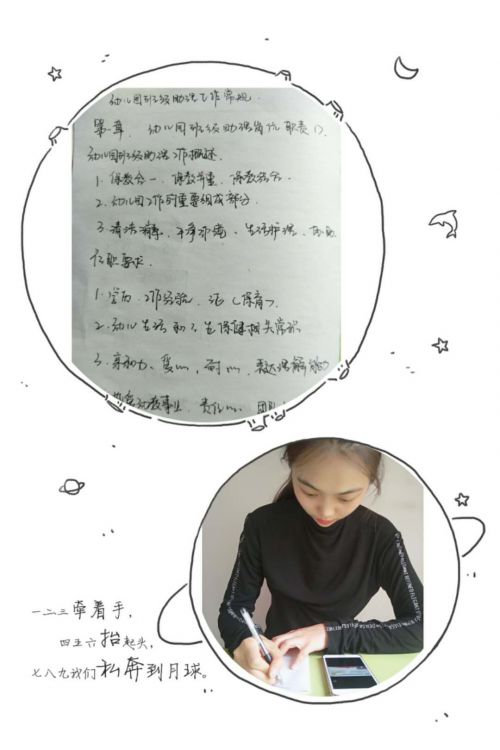 幼儿园班级助理工作常规.
第一章. 幼儿园班级助理岗位职责
幼儿园班级助理工作概述.
1. 保教合一、保教并重、保教结合.
2. 幼儿园工作的重要组成部分.
3. 清洁消毒、干净环境、生活护理、
任职要求.
1. 学历、工作经验、证(保育).
2. 幼儿生活和卫生保健相关常识
3. 亲和力、爱心、耐心、表达理解能力
热爱幼教事业、责任心、团队
一二三牵着手，
四五六抬起头，
七八九我们私奔到月球。